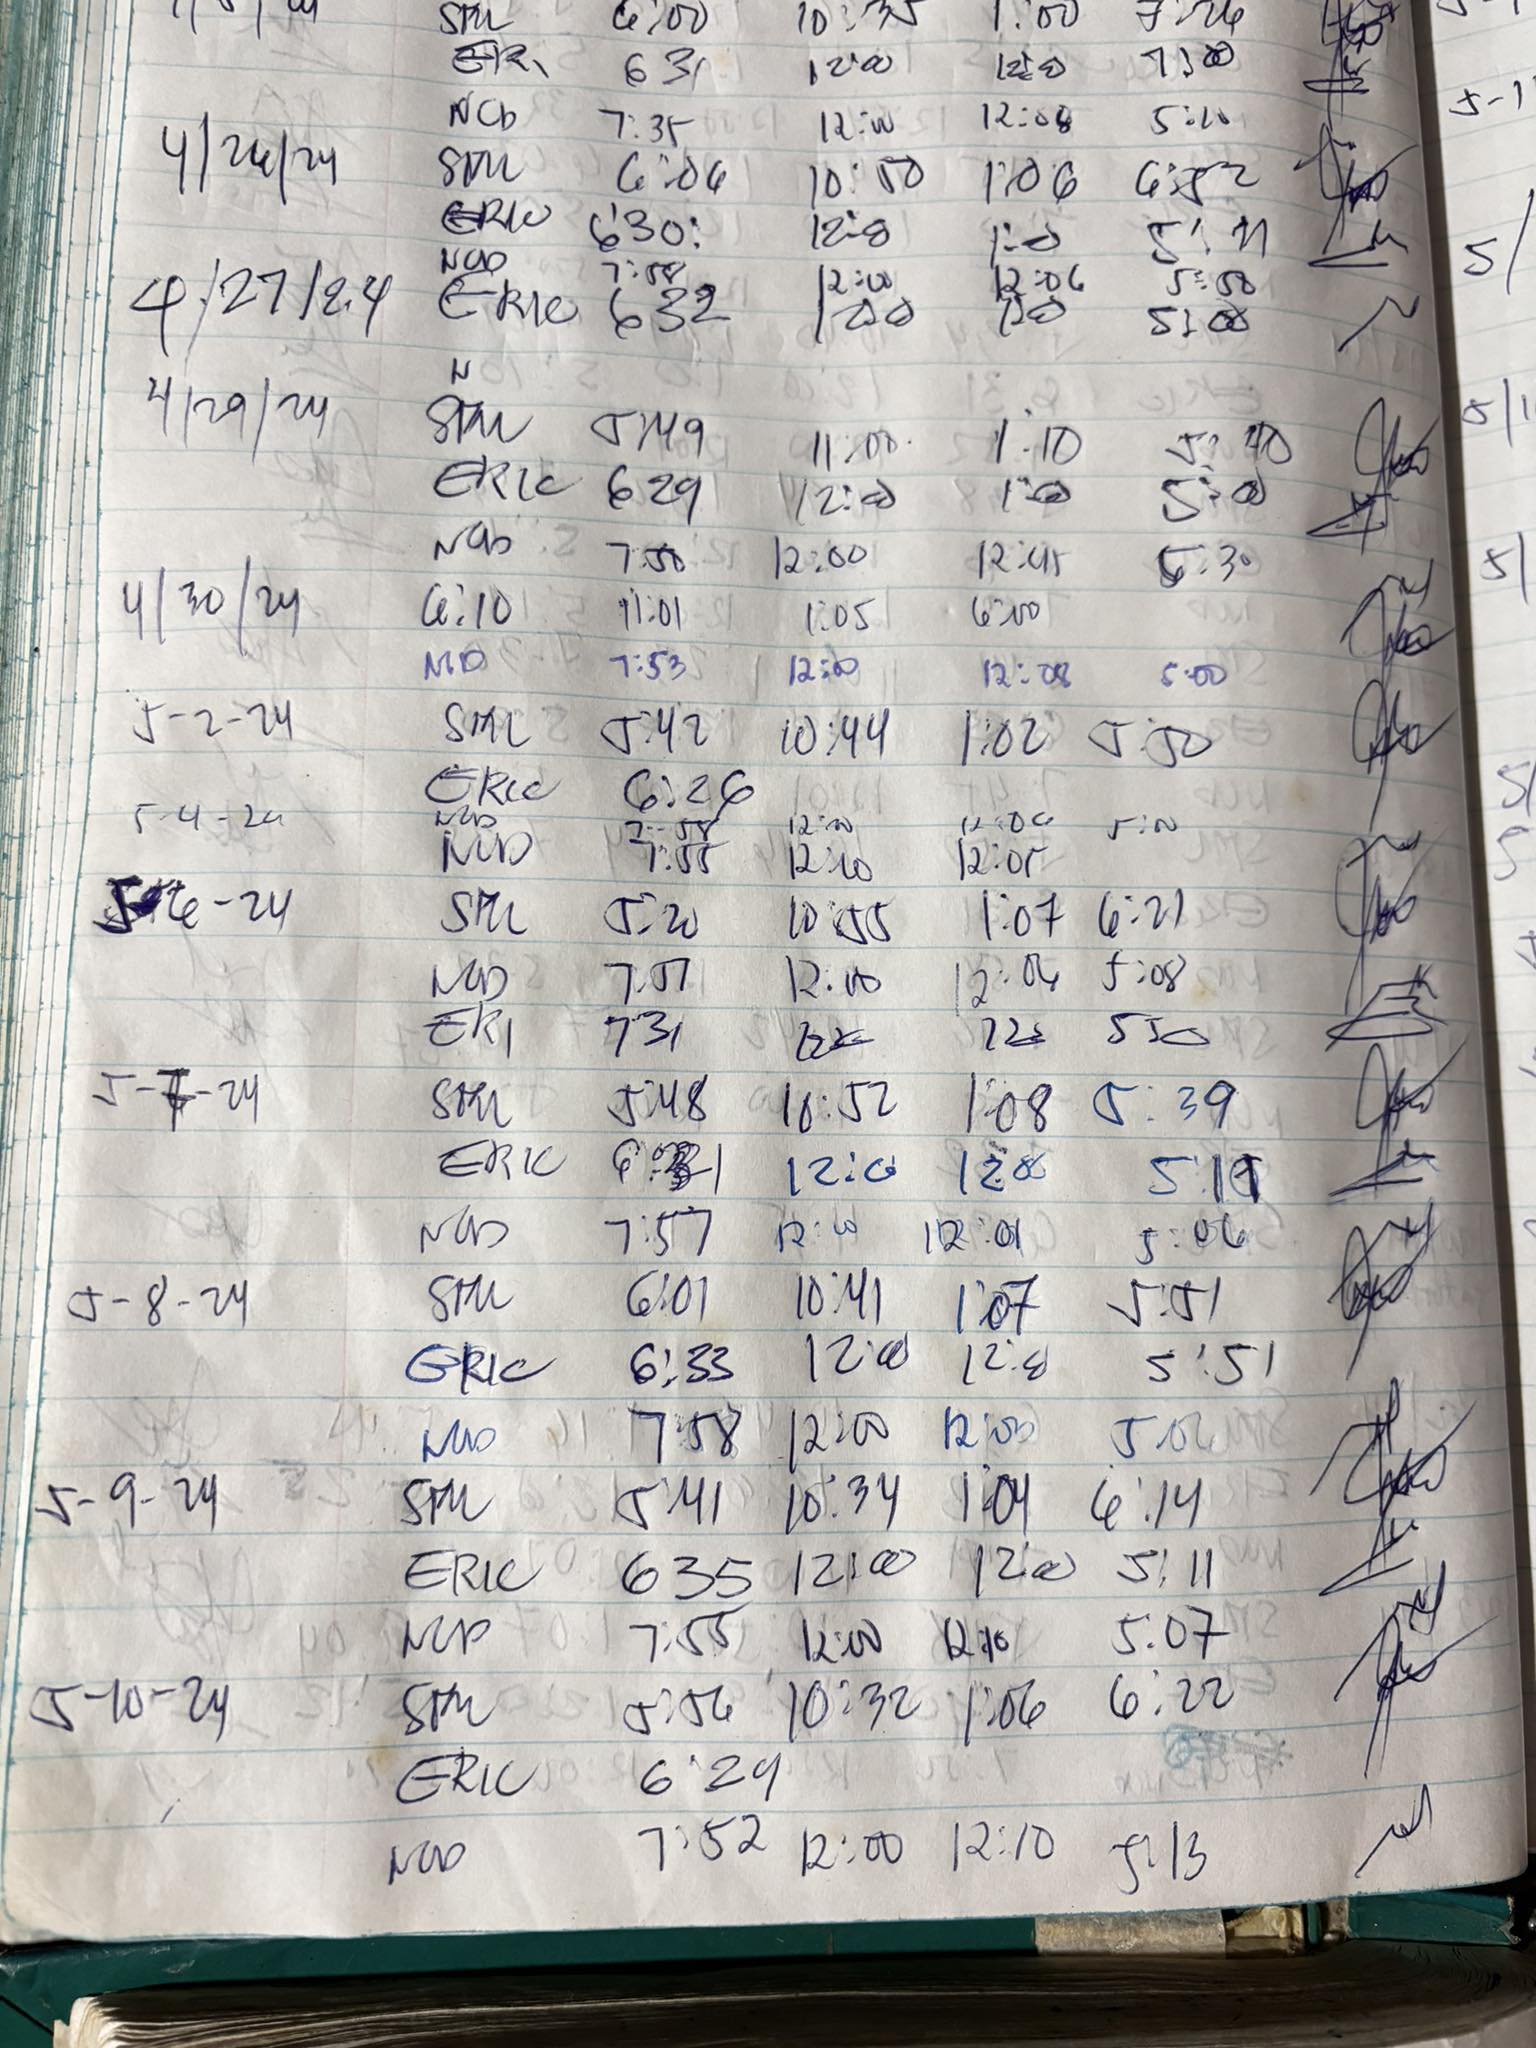 6:00 10:35 1:00 7:26
ERI 631 12:00 12:00 7:00
NCD 7:35 12:00 12:08 5:10
4/26/24 STM 6:06 10:50 1:06 6:52
ERIC 630: 12:0 1:0 5:11
NCD 7:58 12:00 12:06 5:58
4/27/24 ERIC 632 1200 100 5:00
N
4/29/24 STM 5:49 11:00 1:10 5:40
ERIC 629 12:00 1:00 5:00
NCD 7:50 12:00 12:45 5:30
4/30/24 6:10 11:01 1:05 6:00
NCD 7:53 12:00 12:08 5:00
5-2-24 STM 5:42 10:44 1:02 5:50
ERIC 6:26
5-4-24 NCD 7:58 12:00 12:06 5:00
NCD 7:55 12:10 12:05
5-6-24 STM 5:20 10:55 1:07 6:21
NCD 7:57 12:00 12:06 5:08
ERI 731 550
5-7-24 STM 5:48 10:52 1:08 5:39
ERIC 12:0 12:00 5:11
NCD 7:57 12:10 12:01 5:06
5-8-24 STM 6:01 10:41 1:07 5:51
ERIC 6:33 12:00 12:0 5:51
NCD 7:58 12:00 12:00 5:06
5-9-24 STM 5:41 10:34 1:04 6:14
ERIC 635 12:00 12:00 5:11
NCD 7:55 12:00 12:10 5:07
5-10-24 STM 5:56 10:32 1:06 6:22
ERIC 6:29
NCD 7:52 12:00 12:10 5:13